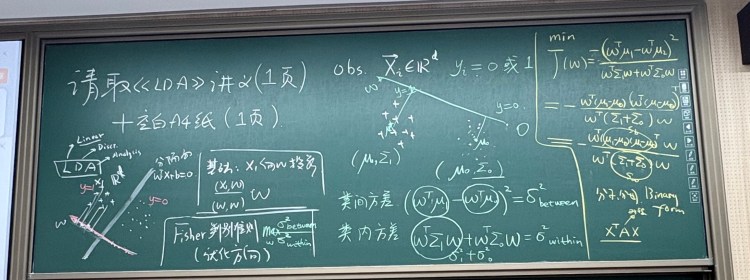 请取《LDA》讲义(1页)
+空白A4纸(1页)
Linear
Discr.
Analysis
LDA
y=1
X
ℝᵈ
y=0
w
分隔面
wᵀx+b=0
算法: Xᵢ向w投影
(X,w)
(w,w) w
Fisher 判别准则
(优化方向)
max w σ²between
σ²within
obs. X⃗ᵢ∈ℝᵈ yᵢ=0 或 1
w
y=1
y=0
0
(μ₁,Σ₁)
(μ₀,Σ₀)
类间方差 (wᵀμ₁-wᵀμ₀)²=σ²between
类内方差 wᵀΣ₁w+wᵀΣ₀w=σ²within
σ²₁+σ²₀
min
J(w)=-(wᵀμ₁-wᵀμ₀)²
wᵀΣ₁w+wᵀΣ₀w
=-wᵀ(μ₁-μ₀)(μ₁-μ₀)ᵀw
wᵀ(Σ₁+Σ₀)w
=-wᵀ(μ₁-μ₀)(μ₁-μ₀)ᵀw
wᵀ(Σ₁+Σ₀)w
Binary
form
XᵀAX